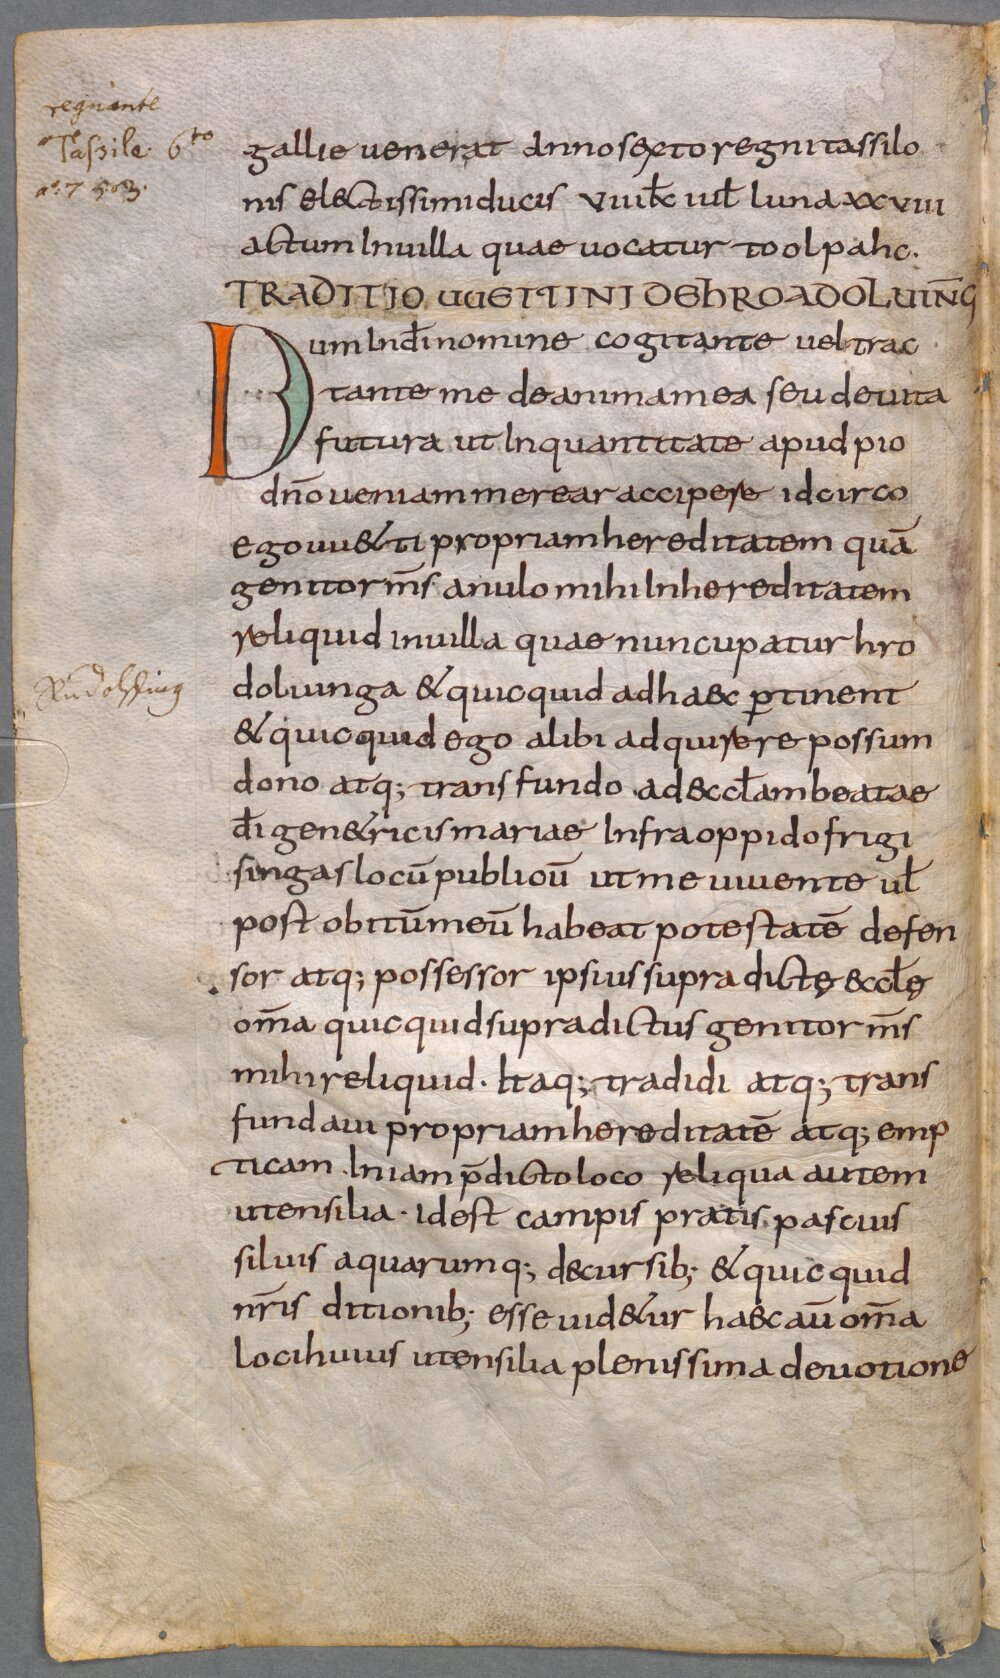 regnante
Tassile. 6to
gallie uenerat anno sexto regni tassilo
nis electissimi ducis viiii kł iuł luna xxviii
actum In uilla quae uocatur toolpahc.
TRADITIO UUETTINI DE hROADOLUING̅
Dum In dī nomine cogitante uel trac
tante me de anima mea seu de uita
futura ut In quantitate apud pio
dn̄o ueniam merear accipere idcirco
ego uu&ti propriam hereditatem quā
genitor m̄s anulo mihi In hereditatem
reliquid in uilla quae nuncupatur hro
doluinga & quicquid ad haec ꝑtinent
& quicquid ego alibi adquirere possum
dono atq; transfundo ad eccłam beatae
dī gen&ricis mariae Infra oppido frigi
singas locū publicū ut me uiuente uł
post obitūmeū habeat potestatē defen
sor atq; possessor ipsius supra dictę eccłę
om̄a quicquid supradictus genitor m̄s
mihi reliquid. Itaq; tradidi atq; trans
fundaui propriam hereditatē atq; emp
ticam. In iam p̄dicto loco reliqua autem
utensilia. id est campis pratis pascuis
siluis aquarumq; decursib; & quicquid
nr̄is ditionib; esse uid&ur haec aū om̄a
loci huius utensilia plenissima deuotione
Rudolfing